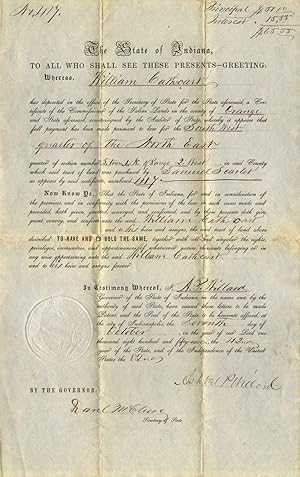 No. 1187.
Principal $50.00
Interest 15.55
$65.55
The State of Indiana,
TO ALL WHO SHALL SEE THESE PRESENTS—GREETING:
Whereas, William Cathcart
has deposited in the office of the Secretary of State for the State aforesaid, a Cer-
tificate of the Commissioner of the Saline Lands in the county of Orange
and State aforesaid, countersigned by the Auditor of State, whereby it appears that
full payment has been made pursuant to law for the South West
quarter of the North East
quarter of section number town 1 N. of Range 2 West in said County
which said tract of land was purchased by Samuel
as appears by said certificate, numbered
Now Know Ye, That the State of Indiana, for and in consideration of
the premises, and in conformity with the provisions of the laws in such cases made and
provided, hath given, granted, conveyed, and confirmed, and by these presents doth give,
grant, convey, and confirm unto the said William Cathcart
and to his heirs and assigns, the said tract of land above
described. TO HAVE AND TO HOLD THE SAME, together with all and singular the rights,
privileges, immunities, and appurtenances of whatsoever nature, belonging or in
any wise appertaining unto the said William Cathcart
and to his heirs and assigns forever.
In Testimony Whereof, I,
Governor of the State of Indiana, in the name and by the
authority of said State, have caused these letters to be made
Patent, and the Seal of the State to be hereunto affixed at
the city of Indianapolis, the Seventh day of
October in the year of our Lord one
thousand eight hundred and fifty the
year of the State, and of the Independence of the United
States the 82nd
BY THE GOVERNOR:
Secretary of State.